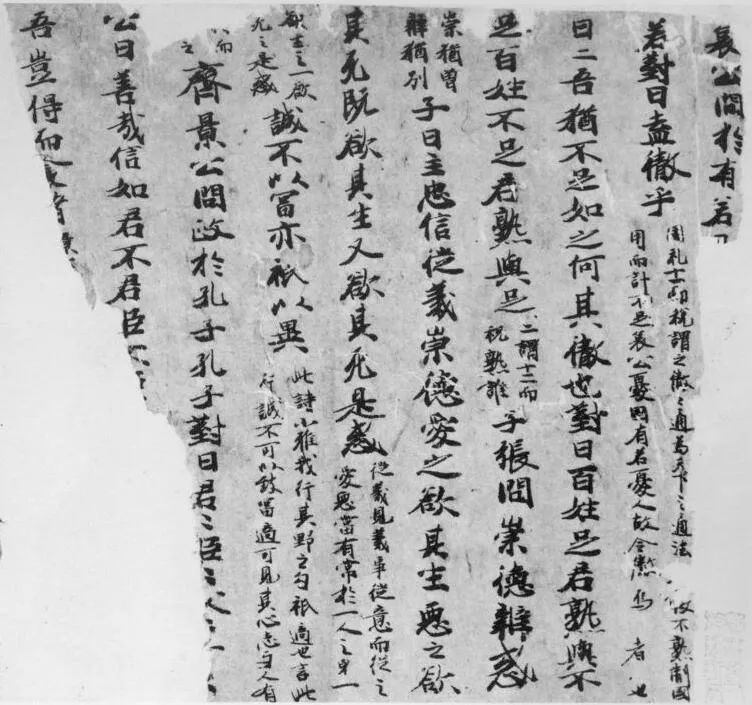 哀公問於有若曰
若對曰盍徹乎
周礼十一而税謂之徹〻通為天下之通法
用而計不足哀公憂國有若憂人故令徹焉者也
曰二吾猶不足如之何其徹也對曰百姓足君熟與不
足百姓不足君熟與足
二謂十二而
税熟誰
子張問崇德辯惑
崇猶曾
辯猶別
子曰主忠信從義崇德愛之欲其生惡之欲
其死既欲其生又欲其死是惑
從義見義事從意而從之
愛惡當有常於一人之身一
欲生之一欲
死之是惑
誠不以富亦祇以異
此詩小雅我行其野之句祇適也言此
行誠不可以致富適可見其心志与人有
而
之
齊景公問政於孔子孔子對曰君〻臣〻父〻
公曰善哉信如君不君臣
吾豈得而食諸